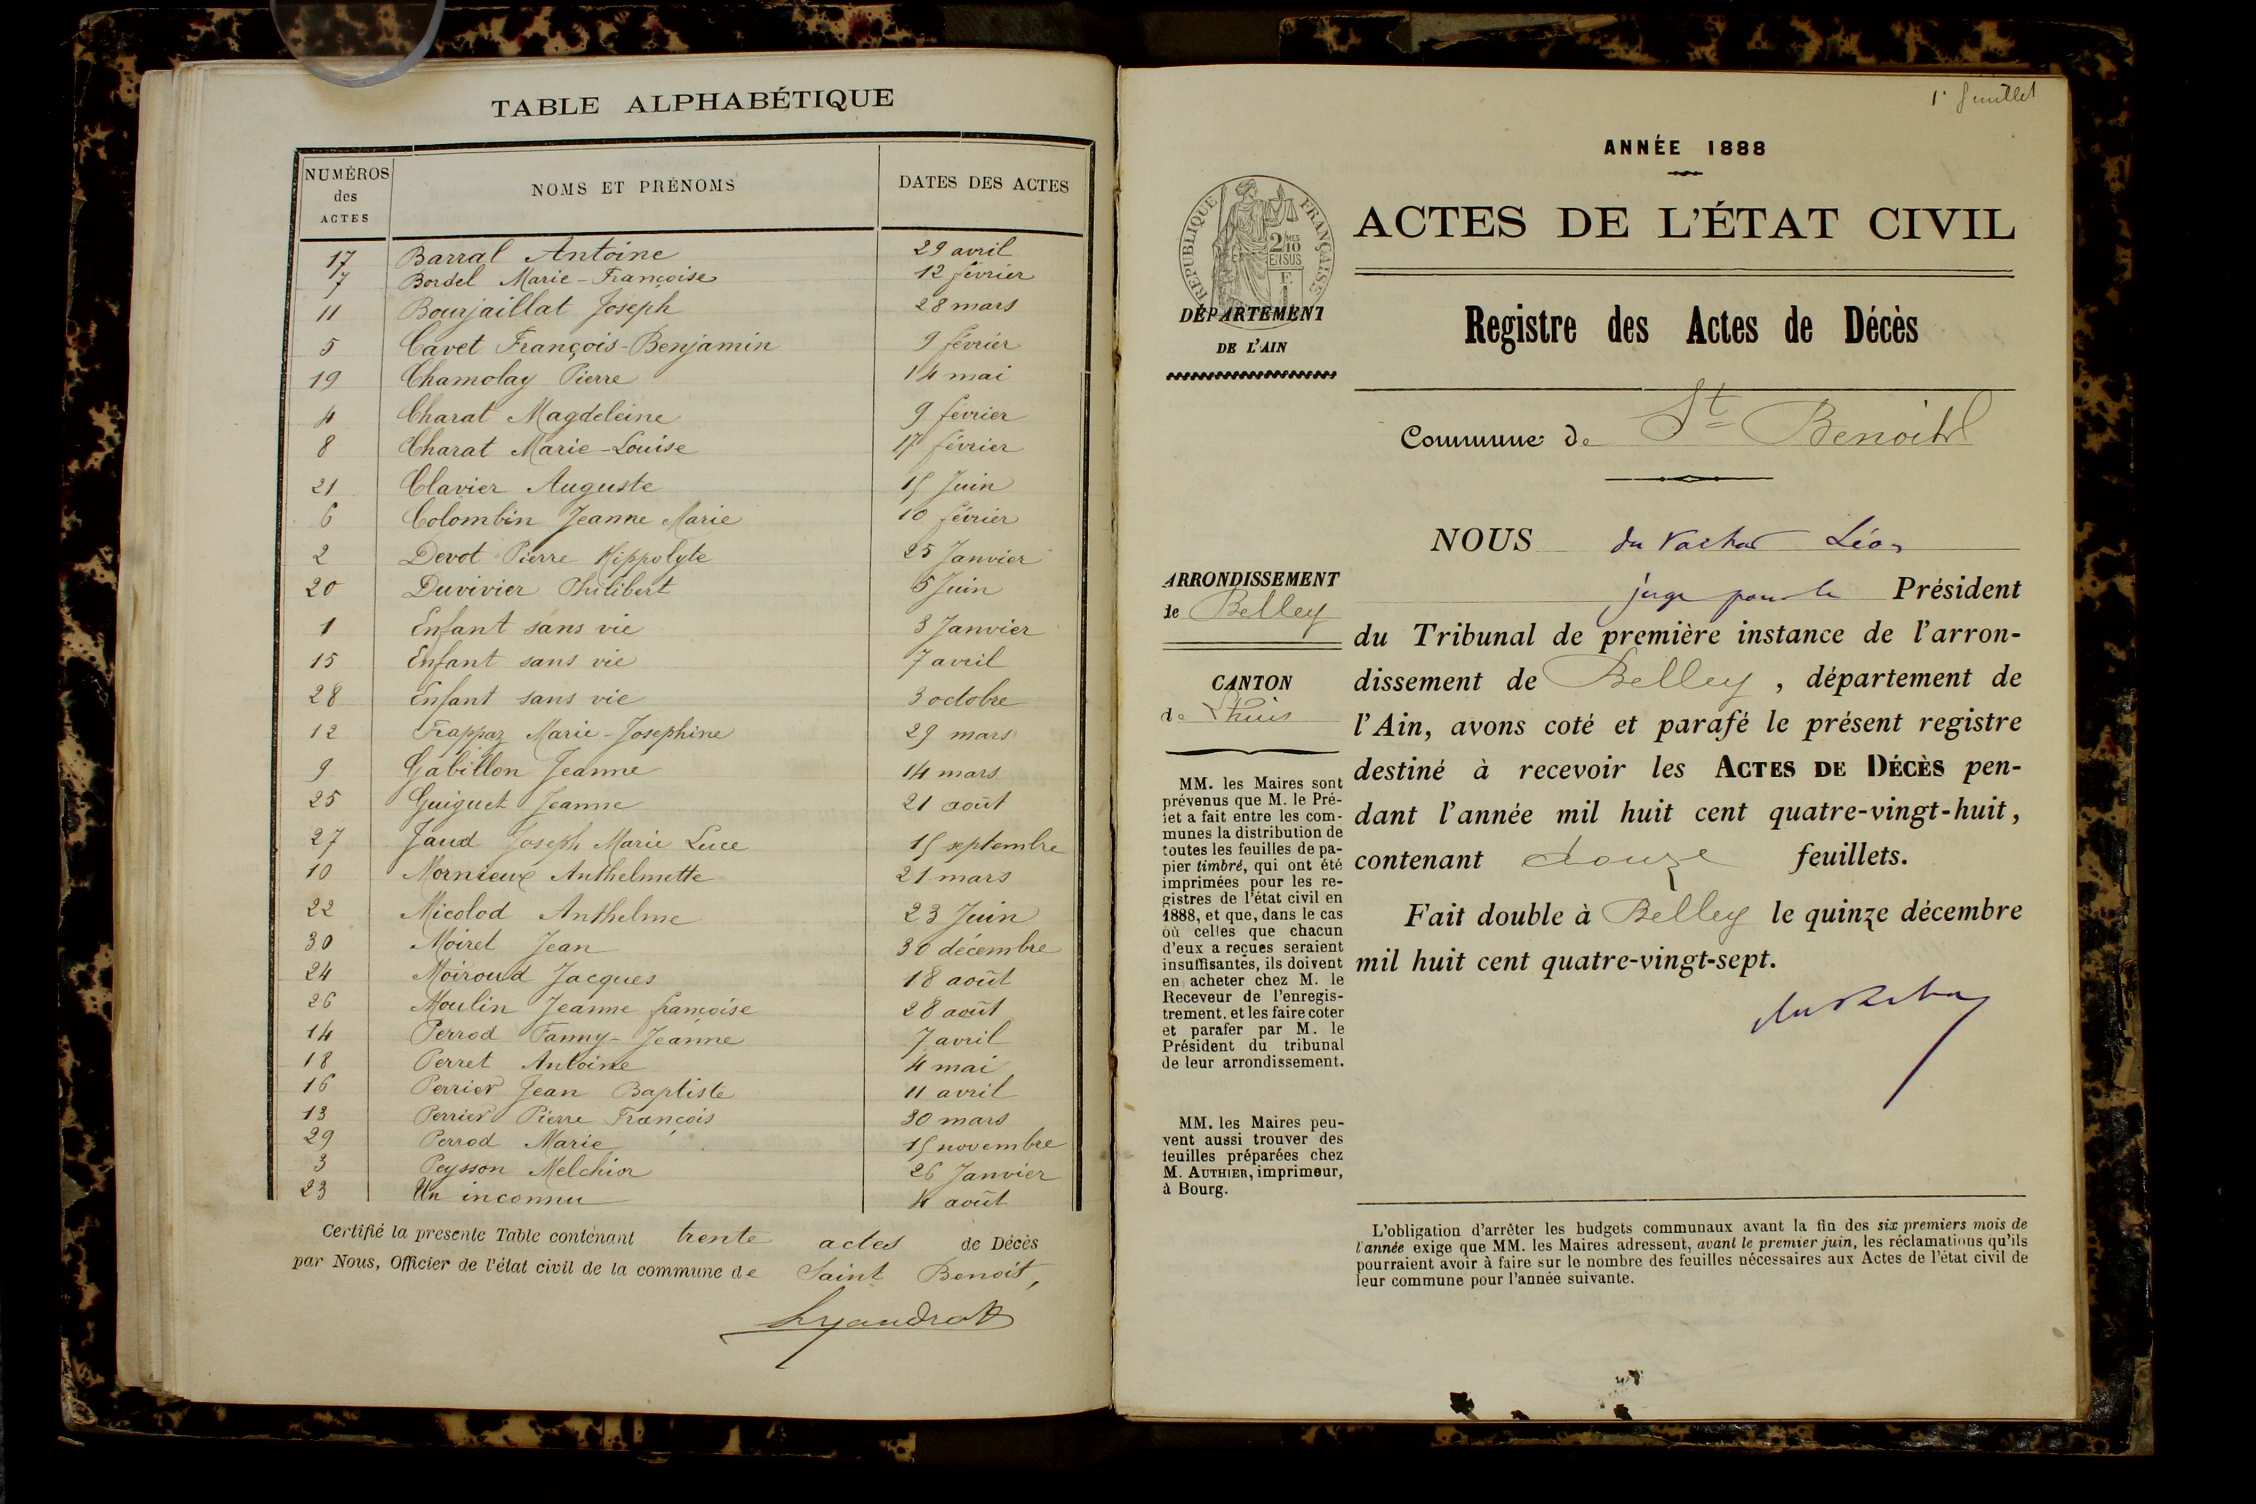 TABLE ALPHABÉTIQUE
NUMÉROS des ACTES NOMS ET PRÉNOMS DATES DES ACTES
17 Barral Antoine 29 avril
7 Bordel Marie-Françoise 12 février
11 Bourjaillat Joseph 28 mars
5 Cavet François-Benjamin 9 février
19 Chamolay Pierre 14 mai
4 Charat Magdeleine 9 février
8 Charat Marie-Louise 17 février
21 Clavier Auguste 15 Juin
6 Colombin Jeanne Marie 10 février
2 Devot Pierre Hippolyte 25 Janvier
20 Duvivier Philibert 5 Juin
1 Enfant sans vie 3 Janvier
15 Enfant sans vie 7 avril
28 Enfant sans vie 3 octobre
12 Frappaz Marie-Josephine 29 mars
9 Gabillon Jeanne 14 mars
25 Guiguet Jeanne 21 août
27 Jaud Joseph Marie Luce 15 septembre
10 Mornieux Anthelmette 21 mars
22 Micolod Anthelme 23 Juin
30 Moiret Jean 30 décembre
24 Moiroud Jacques 18 août
26 Moulin Jeanne françoise 28 août
14 Perrod Fanny-Jeanne 7 avril
18 Perret Antoine 4 mai
16 Perrier Jean Baptiste 11 avril
13 Perrier Pierre François 30 mars
29 Perrod Marie 15 novembre
3 Peysson Melchior 26 Janvier
23 Un inconnu 4 août
Certifié la presente Table contenant trente actes de Décès
par Nous, Officier de l'état civil de la commune de Saint Benoit,
1er feuillet
ANNÉE 1888
RÉPUBLIQUE FRANÇAISE
2 MES 10 EN SUS
F 1
ACTES DE L'ÉTAT CIVIL
DÉPARTEMENT
DE L'AIN
Registre des Actes de Décès
Commune de St Benoit
NOUS du Vachat Léon
juge pour le Président
du Tribunal de première instance de l'arron-
dissement de Belley, département de
l'Ain, avons coté et parafé le présent registre
destiné à recevoir les ACTES DE DÉCÈS pen-
dant l'année mil huit cent quatre-vingt-huit,
contenant douze feuillets.
Fait double à Belley le quinze décembre
mil huit cent quatre-vingt-sept.
ARRONDISSEMENT
de Belley
CANTON
de Lhuis
MM. les Maires sont
prévenus que M. le Pré-
fet a fait entre les com-
munes la distribution de
toutes les feuilles de pa-
pier timbré, qui ont été
imprimées pour les re-
gistres de l'état civil en
1888, et que, dans le cas
où celles que chacun
d'eux a reçues seraient
insuffisantes, ils doivent
en acheter chez M. le
Receveur de l'enregis-
trement, et les faire coter
et parafer par M. le
Président du tribunal
de leur arrondissement.
MM. les Maires peu-
vent aussi trouver des
feuilles préparées chez
M. AUTHIER, imprimeur,
à Bourg.
L'obligation d'arrêter les budgets communaux avant la fin des six premiers mois de
l'année exige que MM. les Maires adressent, avant le premier juin, les réclamations qu'ils
pourraient avoir à faire sur le nombre des feuilles nécessaires aux Actes de l'état civil de
leur commune pour l'année suivante.